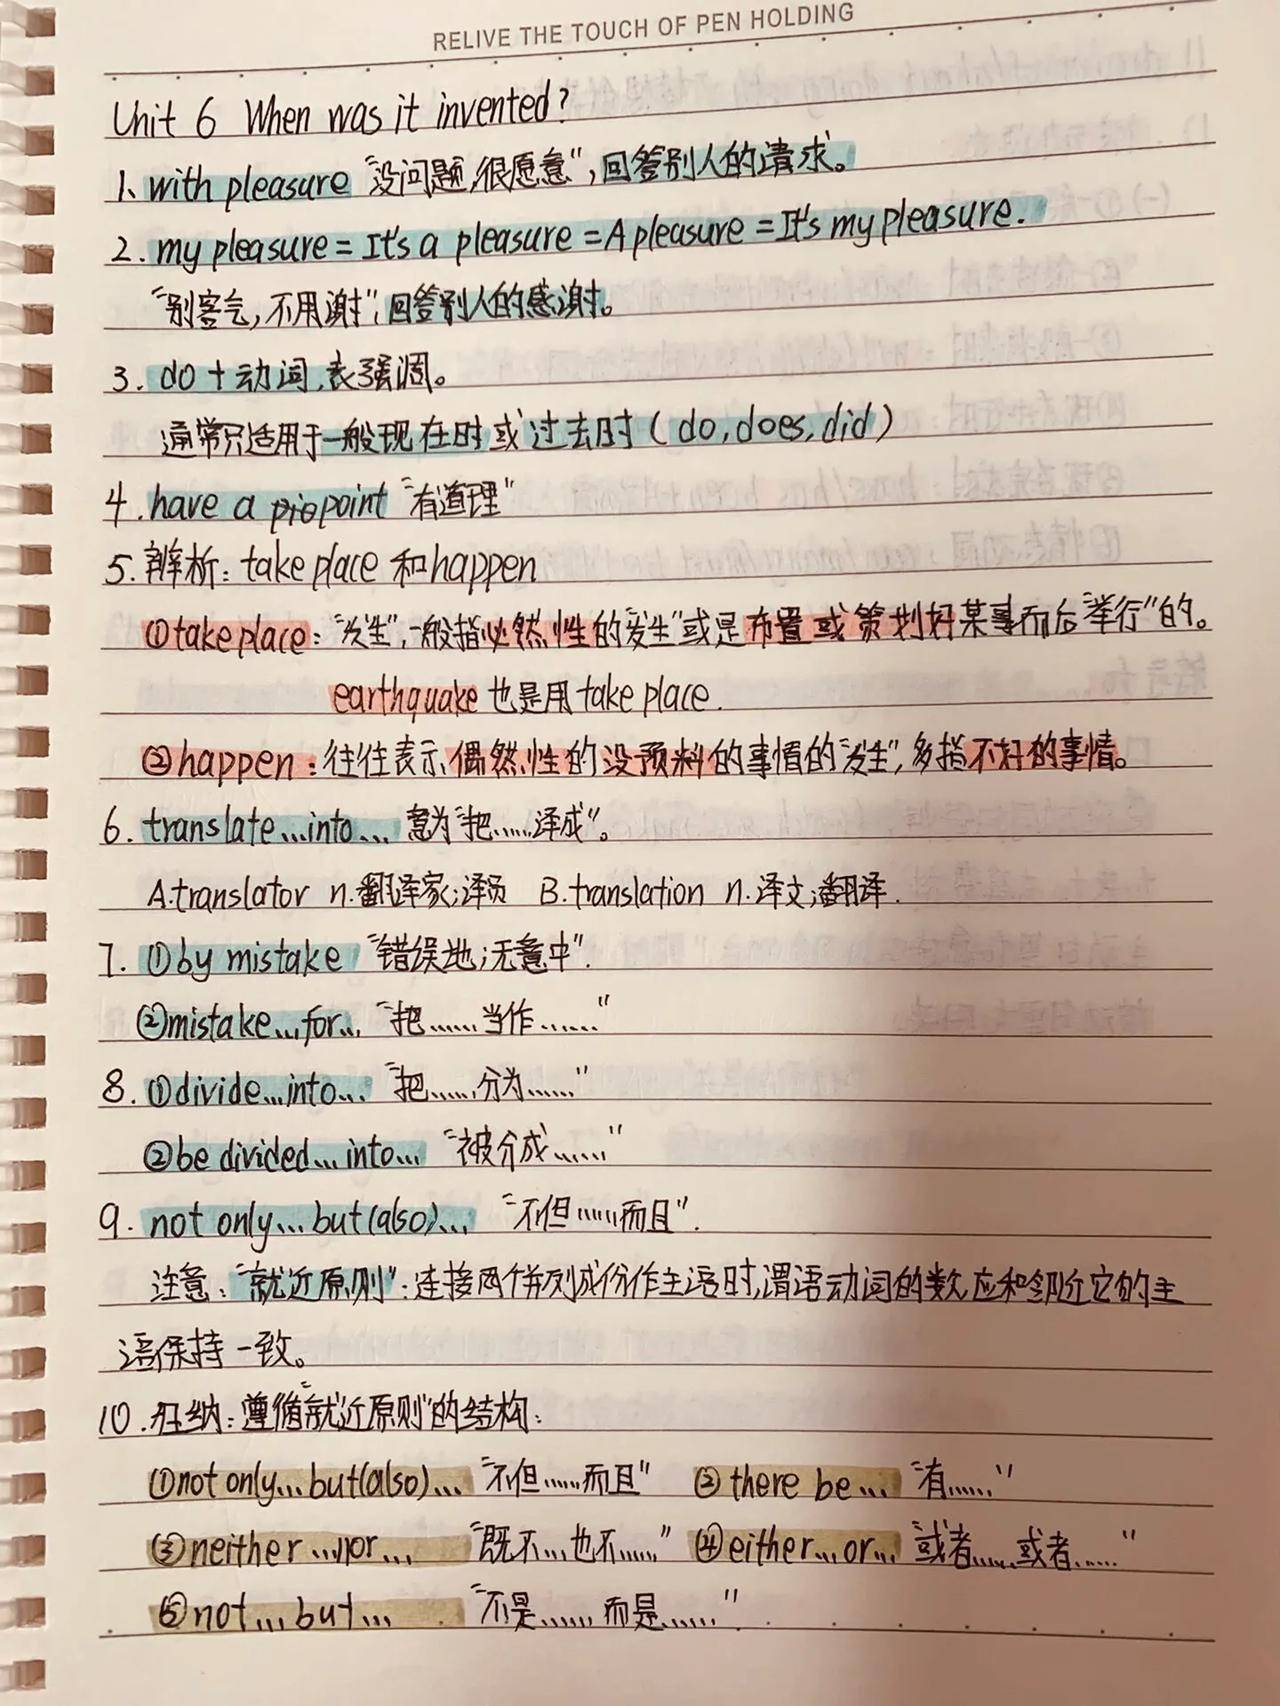 RELIVE THE TOUCH OF PEN HOLDING
Unit 6 When was it invented?
1. with pleasure "没问题,很愿意",回答别人的请求。
2. my pleasure = It's a pleasure = A pleasure = It's my pleasure.
"别客气,不用谢",回答别人的感谢。
3. do + 动词,表强调。
通常只适用于一般现在时或过去时(do,does,did)
4. have a point "有道理"
5. 辨析: take place 和 happen
①take place: "发生",一般指必然性的"发生"或是布置或策划好某事而后"举行"的。
earthquake 也是用 take place.
②happen: 往往表示偶然性的没预料的事情的"发生",多指不好的事情。
6. translate...into... 意为"把......译成"。
A.translator n.翻译家;译员 B.translation n.译文;翻译.
7. ①by mistake "错误地;无意中".
②mistake...for... "把......当作......"
8. ①divide...into... "把......分为......"
②be divided...into... "被分成......"
9. not only...but(also)... "不但......而且".
注意: "就近原则": 连接两个并列成份作主语时,谓语动词的数应和邻近它的主
语保持一致。
10. 归纳: 遵循"就近原则"的结构:
①not only...but(also)... "不但......而且" ②there be... "有......"
③neither...nor... "既不...也不......" ④either...or... "或者......或者......"
⑤not...but... "不是......而是......"